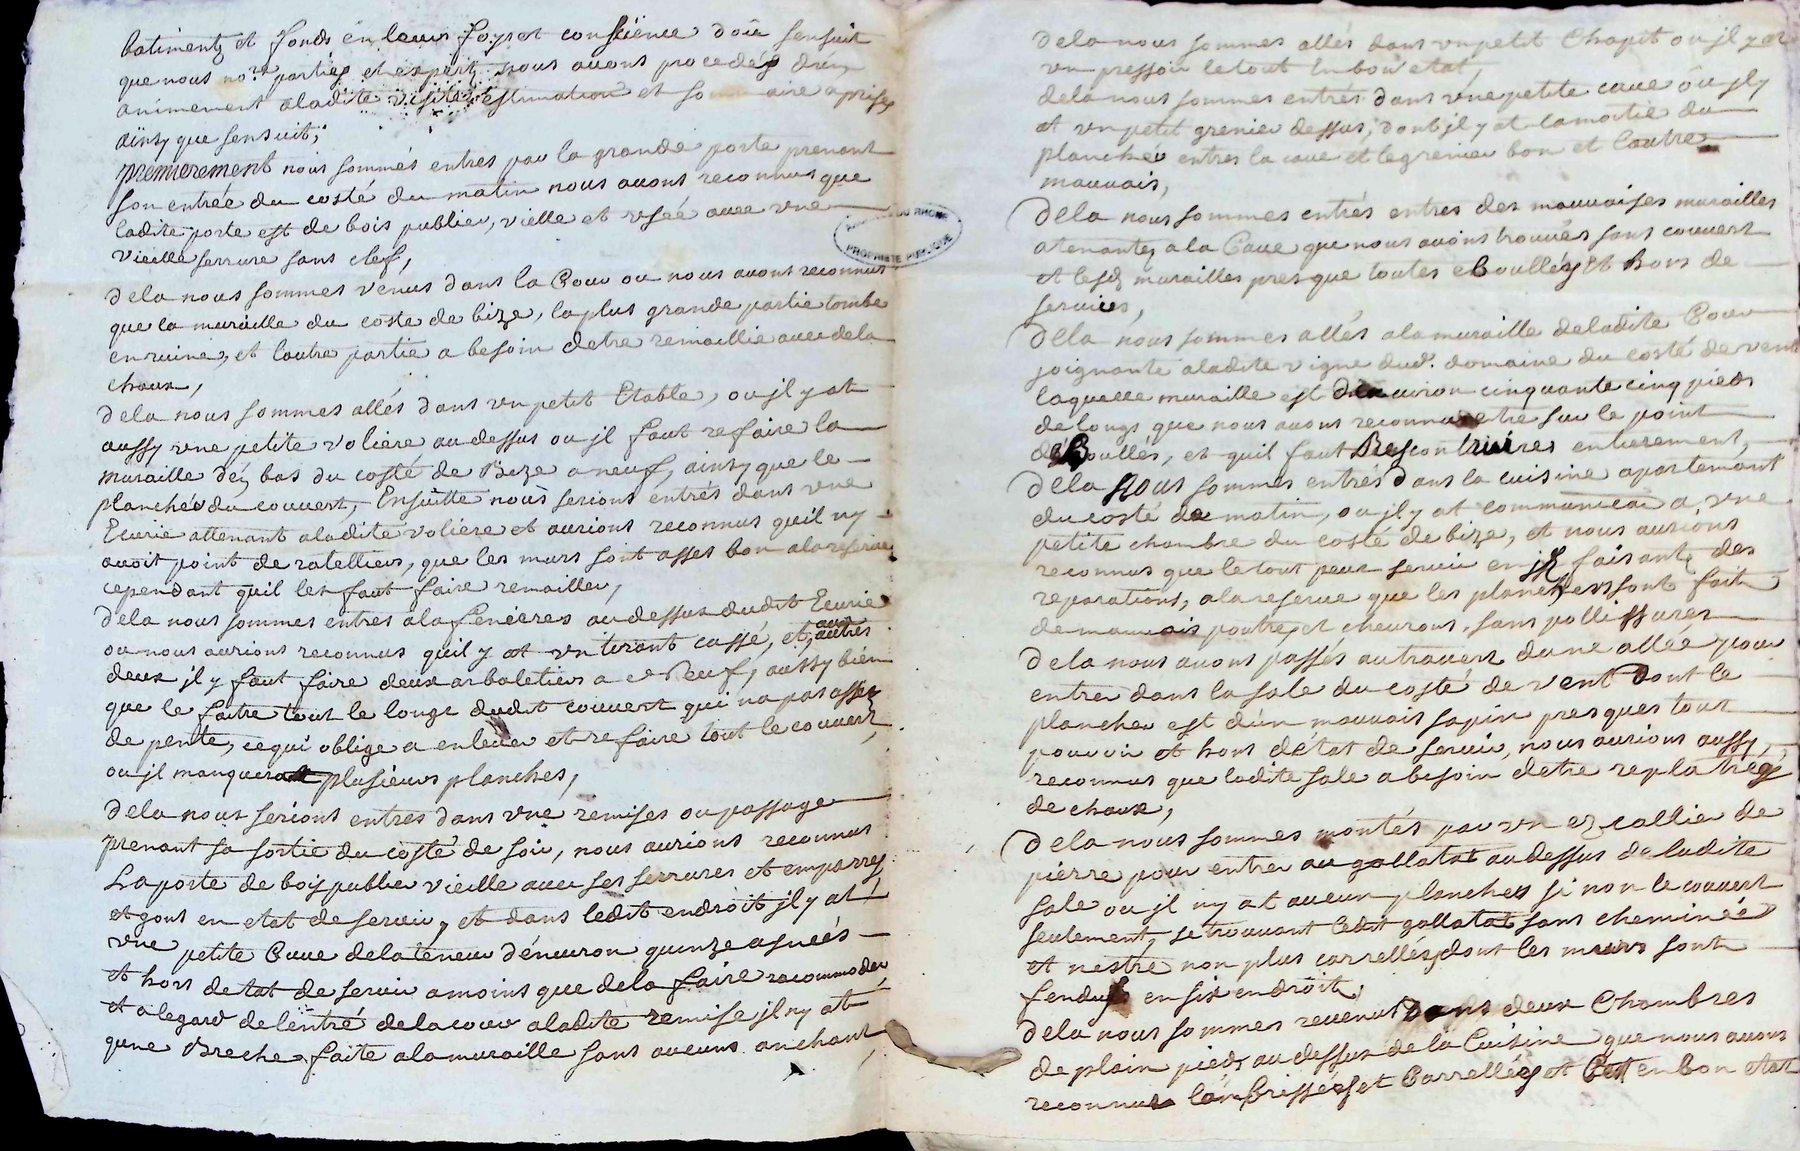 batimentz et fonds en leurs foys et consïence d'où sensuit
que nous no.rs parties et expert nous avons procedés
animement a ladite visite estimation et aprisy
ainsy que sensuit,
premierement nous sommés entres par la grande porte prenant
son entrée du costé du matin nous avons reconnus que
ladite porte est de bois publier, vielle et usée avec une
vieille serrure sans clef,
de la nous sommes venus dans la Cour ou nous avons reconnus
que la muraille du coste de bize, la plus grande partie tombe
en ruine, et lautre partie a besoin detre remaillie avec de la
chaux,
de la nous sommes allés dans un petit Etable, ou jl y at
aussy une petite voliere au dessus ou jl faut refaire la
muraille déz bas du costé de Bize a neuf, ainsy que le
planché du couvert, Ensuitte nous serions entrés dans une
Ecurie attenant a ladite voliere et aurions reconnus quil ny
avoit point de ratelliers, que les murs sont asses bon a la reserve
cependant quil les faut faire remailler,
de la nous sommes entres a la feniere au dessus dudit Ecurie
ou nous aurions reconnus quil y at un tirant cassé, et aux autres
deux jl y faut faire deux arbaletiers a neuf, aussy bien
que le faitre tout le longt dudit couvert qui na pas assez
de pente, ce qui oblige a enlever et refaire tout le couvert,
ou jl manquera plusieurs planches,
de la nous serions entres dans une remises ou passage
prenant sa sortie du costé de soir, nous aurions reconnus
La porte de bois publier vieille avec ses serrures et emparres
et gons en etat de servir, et dans ledit endroit jl y at
une petite Cuve de la teneur dénviron quinze asnéés
et hors detat de servir a moins que de la faire racommoder
et a legard de lentré de la cour a ladite remise jl ny at
qune Breche faite a la muraille sans aucuns anchant
de la nous sommes allés dans un petit Chapit ou jl y at
un pressoir le tout En bon etat,
de la nous sommes entrés dans une petite cave où jl y
et un petit grenier dessus, dont jl y at la moitie du
planché entres la cave et le grenier bon et lautre
mauvais,
de la nous sommes entrés entres des mauvaises murailles
atenantes a la Cave que nous avons trouvés sans couvert
et lesd. murailles presque toutes eboullés et hors de
services,
de la nous sommes allés a la muraille de ladite Cour
joignante a ladite vigne dud. domaine du costé de vent
laquelle muraille est d'environ cinquante cinq pieds
de longs que nous avons reconnu etre sur le point
de Boulles, et quil faut Rescontruires entierement,
de la nous sommes entrés dans la cuisine apartemant
du costé de matin, ou jl y at communica.on a, une
petite chambre du costé de bize, et nous aurions
reconnus que le tout peut servir en jl faisants des
reparations, a la reserve que les planchers sont fait
de mauvais poutres et chevrons, sans pollissures
de la nous avons passés au travers dune allée pour
entrer dans la sale du costé de vent dont le
plancher est d'un mauvais sapin presques tout
pouvoir et hors d'état de servir, nous aurions aussy,
reconnus que ladite sale a besoin detre replatrés
de chaux,
de la nous sommes montés par un ezcallier de
pierre pour entrer au gallatat au dessus de ladite
sale ou jl ny at aucun planchers si non le couvert
seulement, se trouvant ledit gallatat sans cheminée
et nestre non plus carrellés, dont les murs sont
fendus en six endroit,
de la nous sommes revenus dans deux Chambres
de plain pieds au dessus de la Cuisine que nous avons
reconnus lambrissés et Carrellés et est en bon etat
PROPRIETE PUBLIQUE